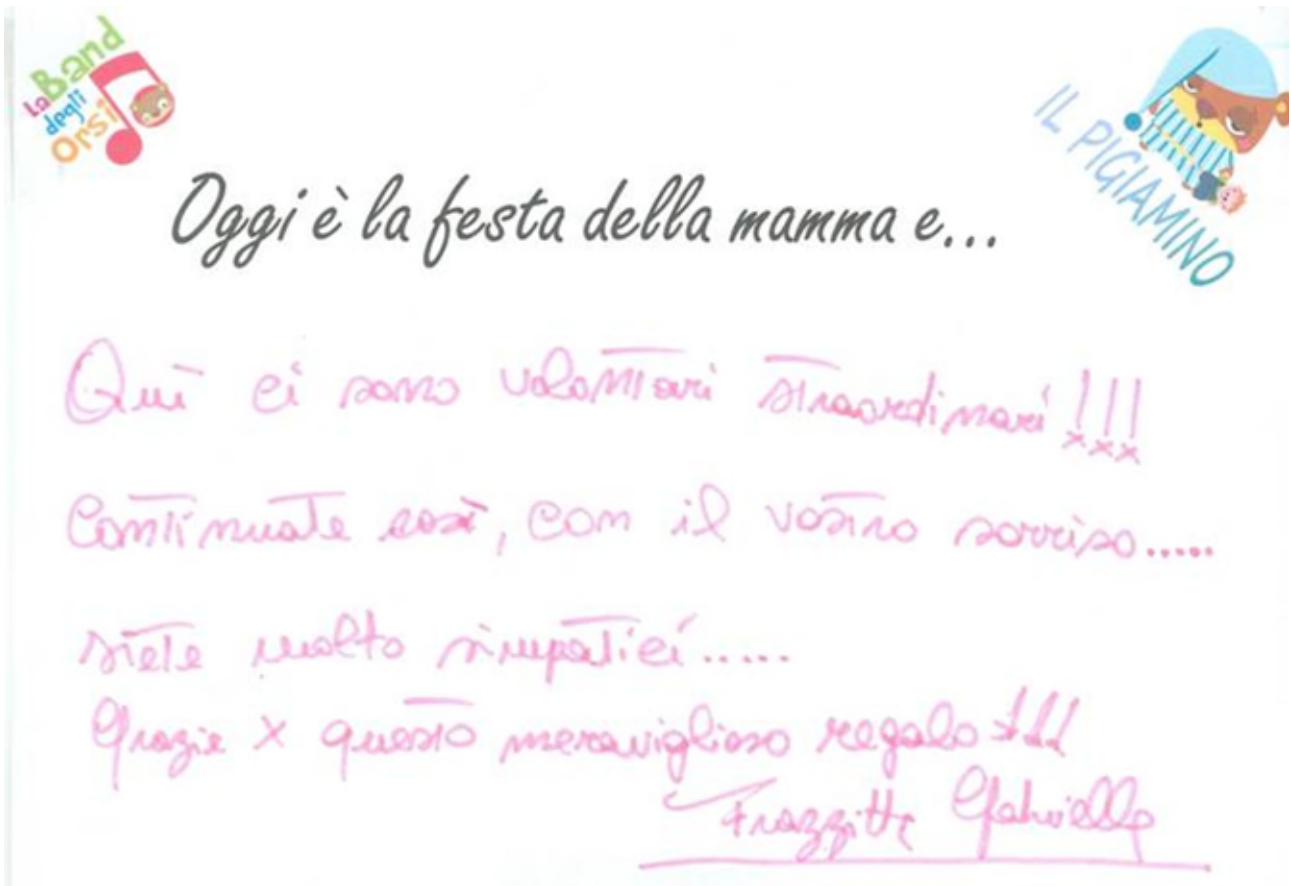 La Band degli Orsi
IL PIGIAMINO
Oggi è la festa della mamma e...
Quì ci sono volontari straordinari!!!
Continuate così, con il vostro sorriso.....
siete molto simpatici.....
Grazie x questo meraviglioso regalo!!!
Frazzitta Gabriella